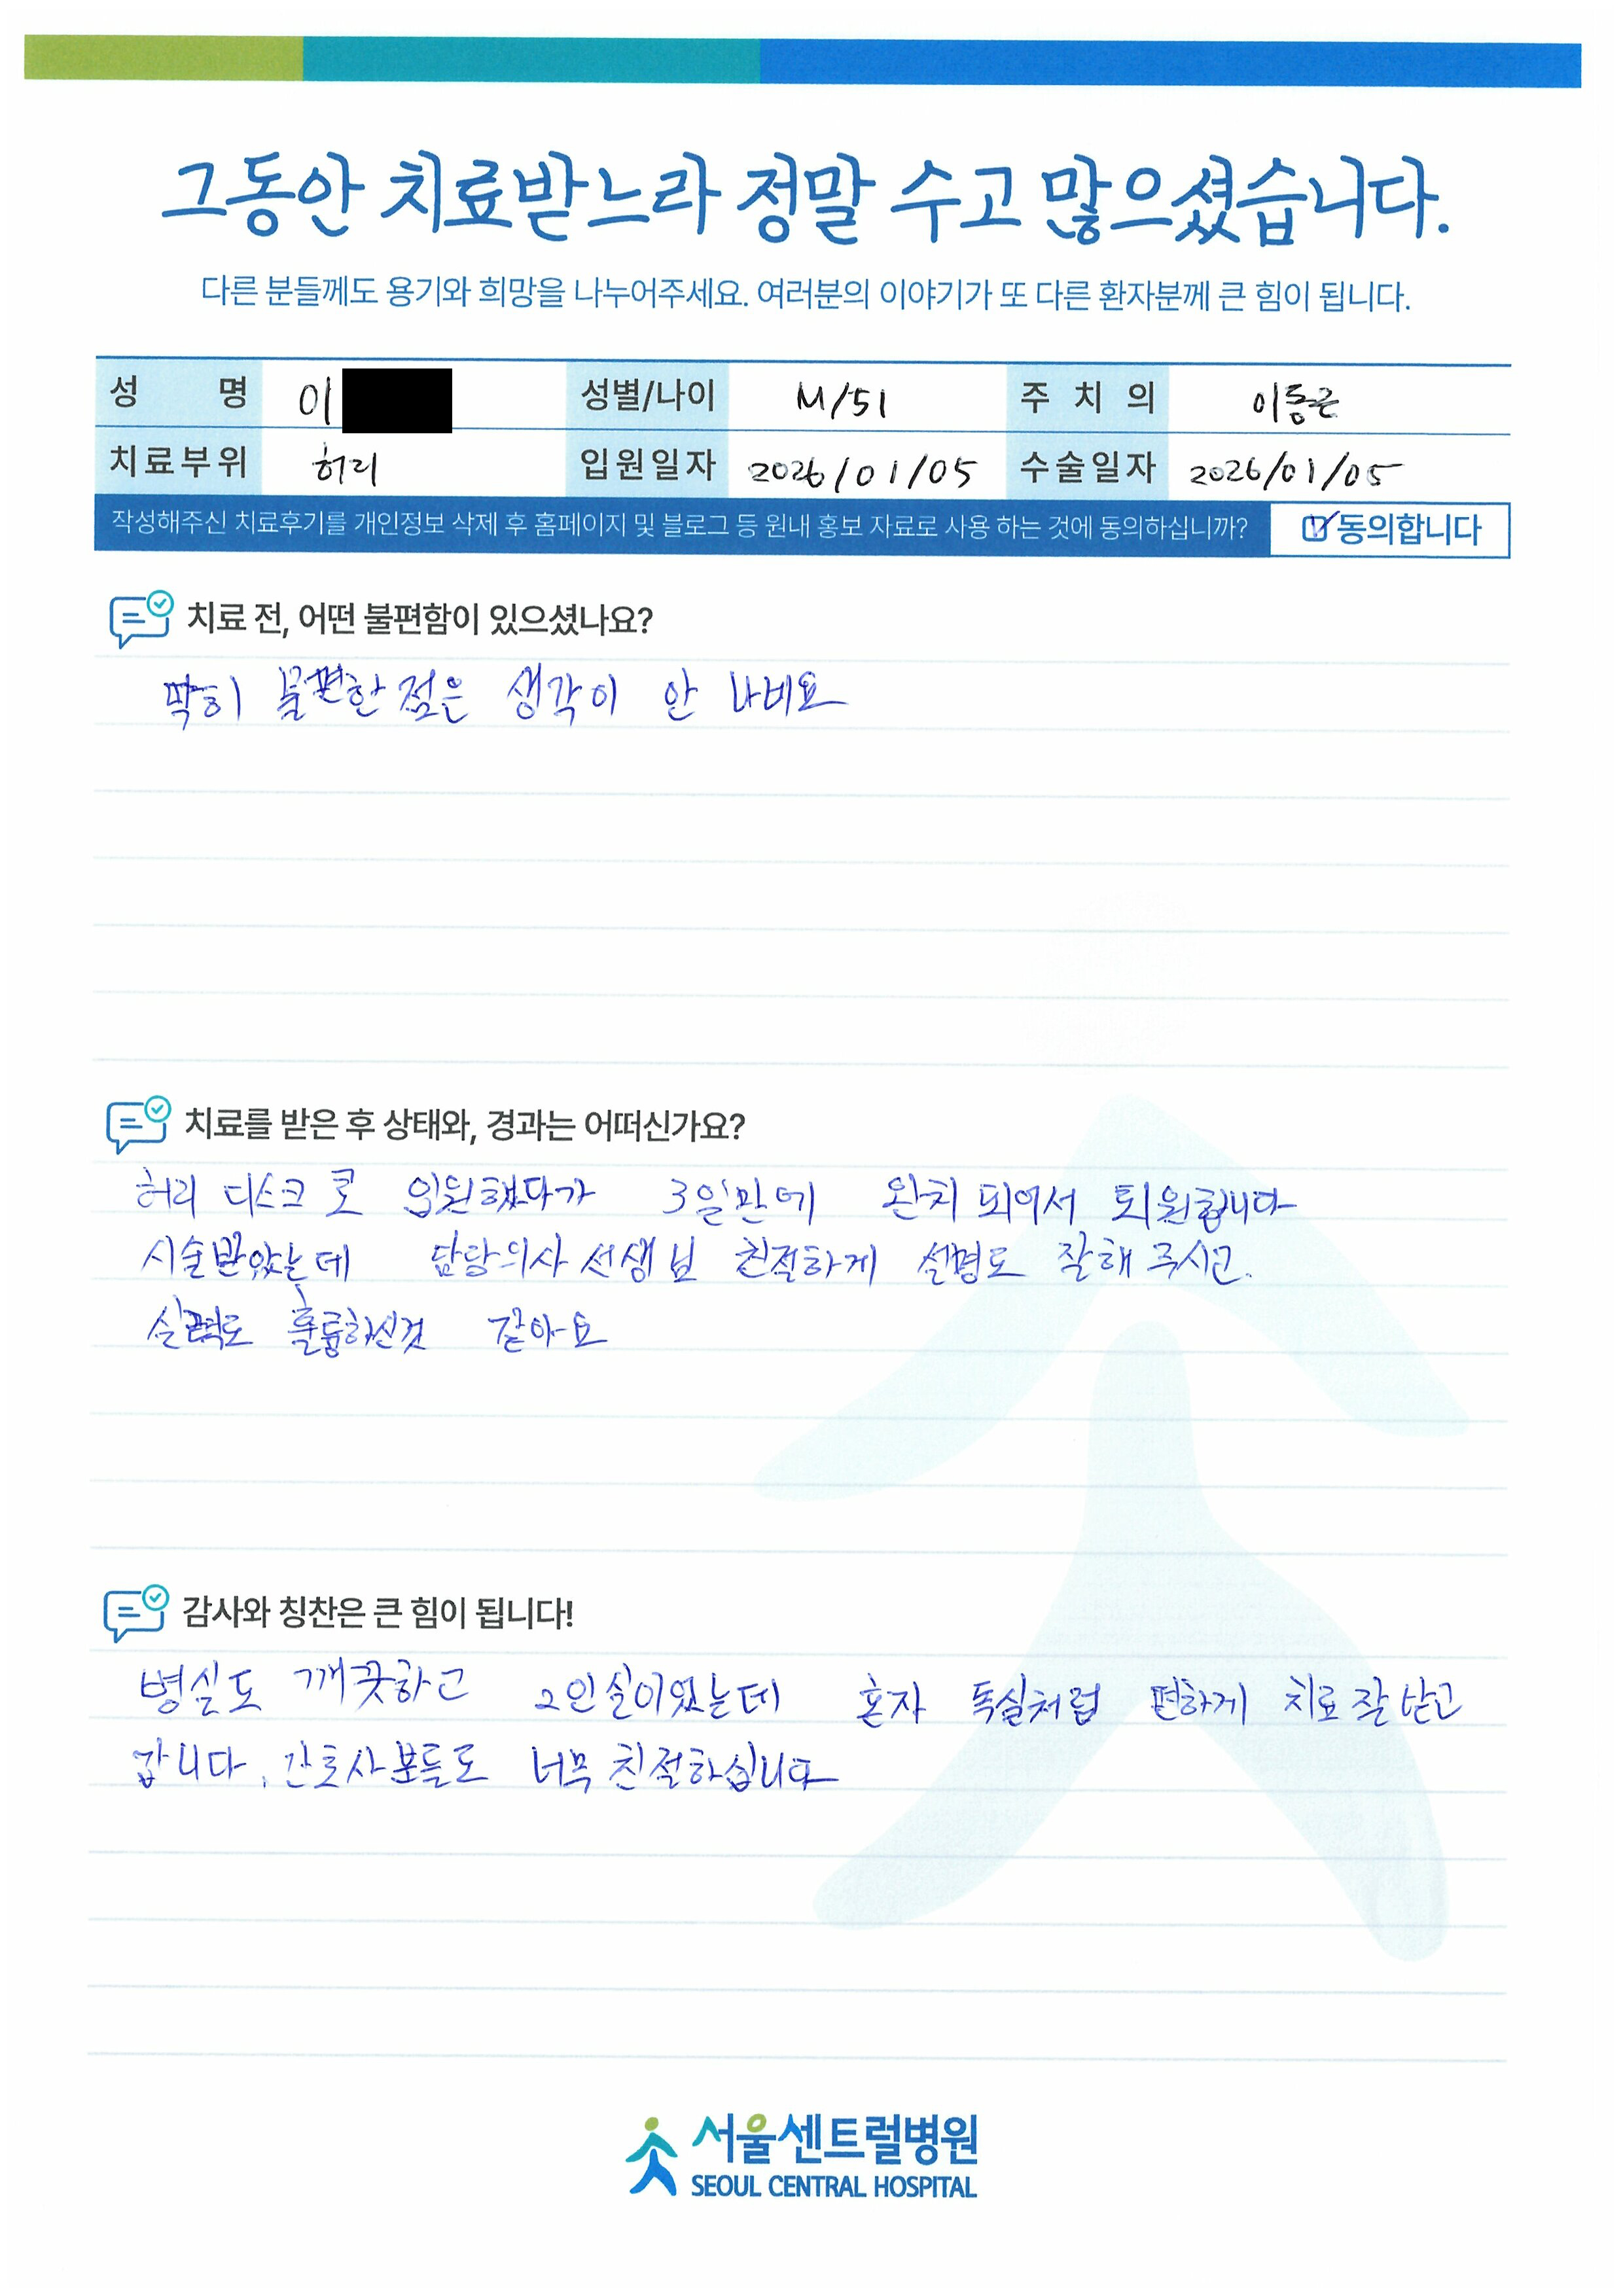 그동안 치료받느라 정말 수고 많으셨습니다.
다른 분들께도 용기와 희망을 나누어주세요. 여러분의 이야기가 또 다른 환자분께 큰 힘이 됩니다.
성 명 이 성별/나이 M/51 주 치 의 이동근
치료부위 허리 입원일자 2026/01/05 수술일자 2026/01/05
작성해주신 치료후기를 개인정보 삭제 후 홈페이지 및 블로그 등 원내 홍보 자료로 사용 하는 것에 동의하십니까? 동의합니다
치료 전, 어떤 불편함이 있으셨나요?
딱히 불편한 점은 생각이 안 나네요
치료를 받은 후 상태와, 경과는 어떠신가요?
허리 디스크로 입원했다가 3일만에 완치 되어서 퇴원합니다
시술받았는데 담당의사 선생님 친절하게 설명도 잘해 주시고.
실력도 훌륭하신것 같아요
감사와 칭찬은 큰 힘이 됩니다!
병실도 깨끗하고 2인실이었는데 혼자 독실처럼 편하게 치료 잘 받고
갑니다. 간호사분들도 너무 친절하십니다
서울센트럴병원
SEOUL CENTRAL HOSPITAL